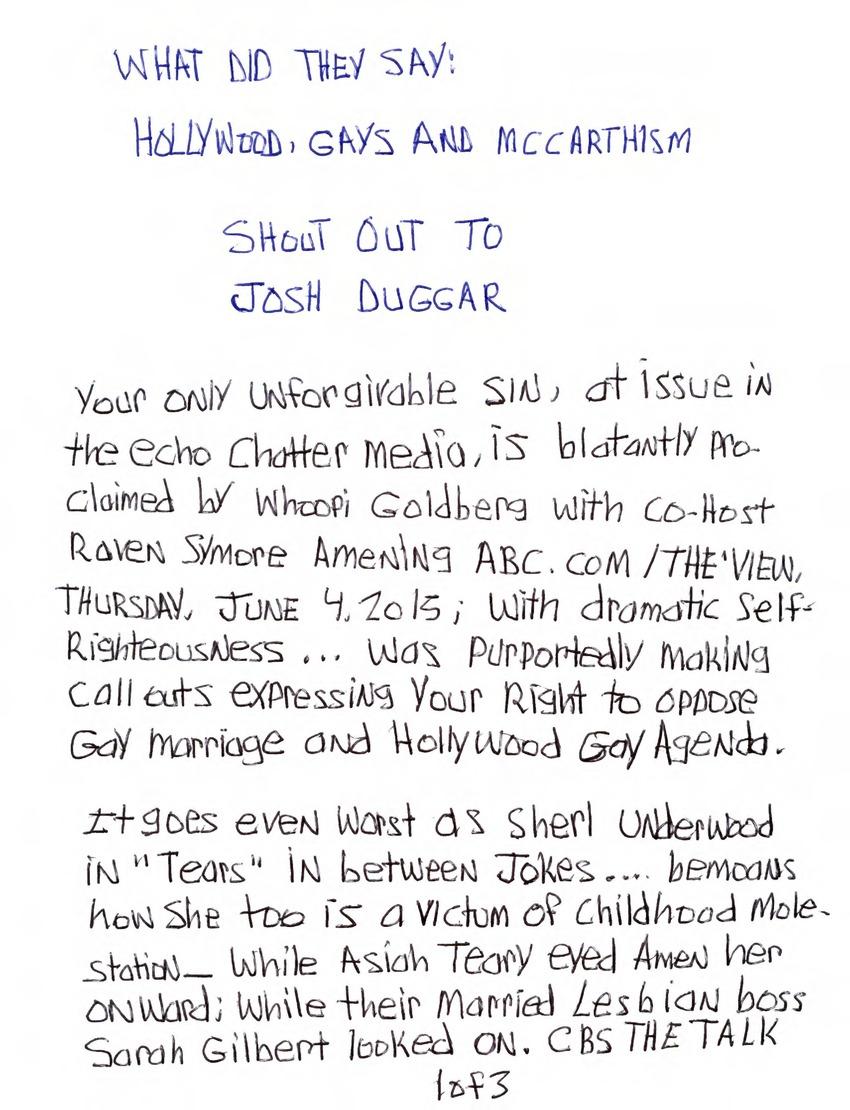 WHAT DID THEY SAY:
HOLLYWOOD, GAYS AND MCCARTHISM
SHOUT OUT TO
JOSH DUGGAR
Your only unforgivable SIN, at issue in
the echo Chatter media, is blatantly pro-
claimed by Whoopi Goldberg with co-Host
Raven Symore Amening ABC.COM/THE'VIEW,
THURSDAY, JUNE 4, 2015; with dramatic Self-
Righteousness ... was purportedly making
call outs expressing your Right to oppose
Gay marriage and Hollywood Gay Agenda.
It goes even worst as Sherl Underwood
in "Tears" in between Jokes.... bemoans
how She too is a victum of Childhood Mole-
station_ While Asiah Teary eyed Amen her
onward; while their Married Lesbian boss
Sarah Gilbert looked on. CBS THE TALK
1of3